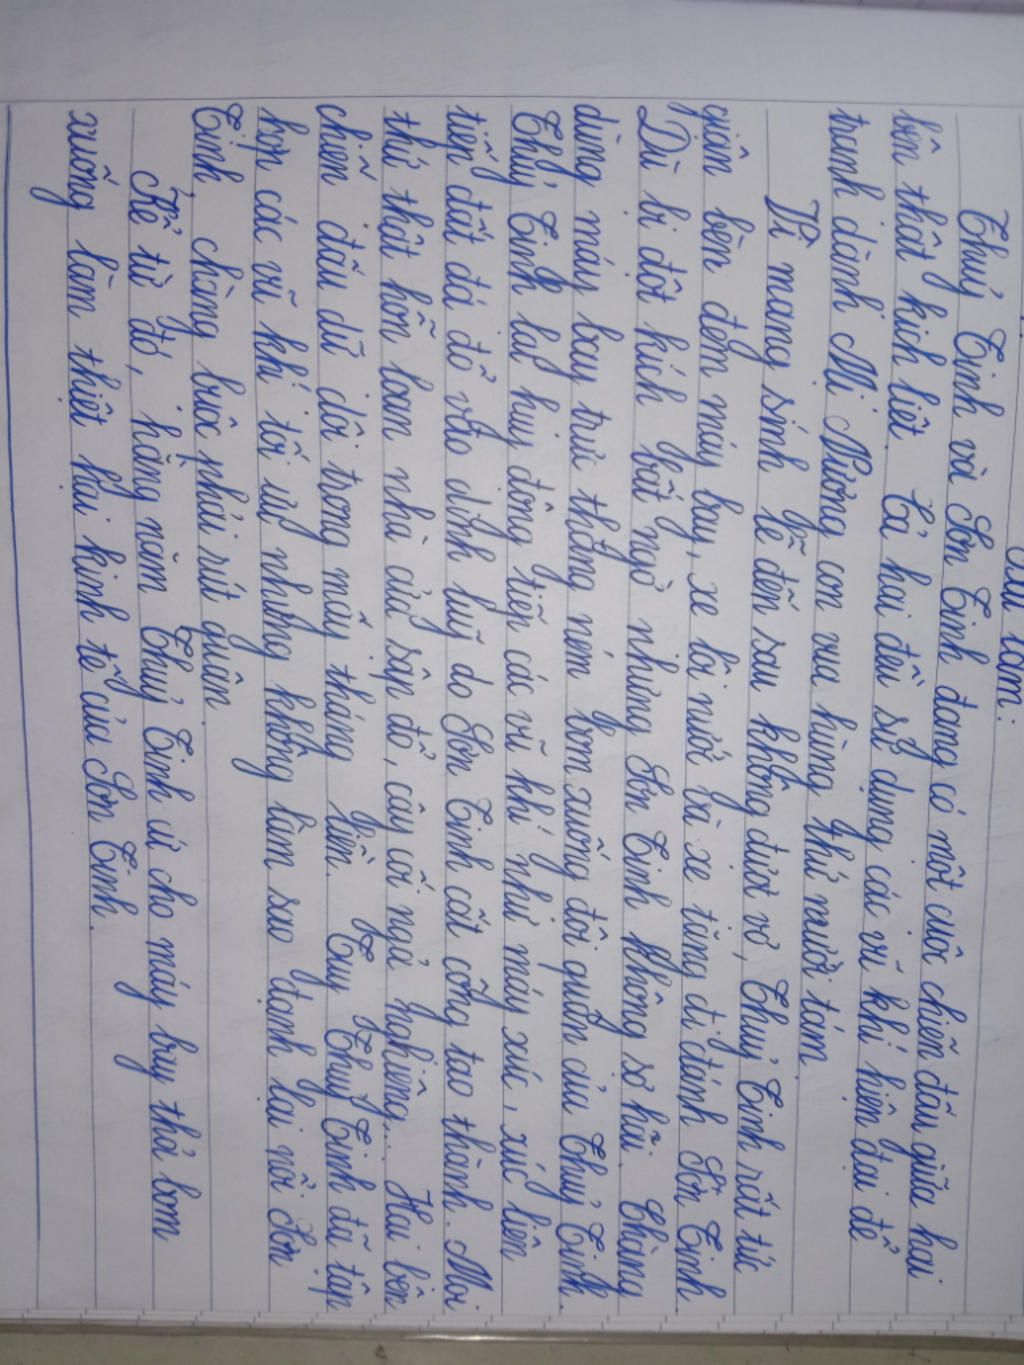 Bài làm:
Thuỷ Tinh và Sơn Tinh đang có một cuộc chiến đấu giữa hai
bên thật kịch liệt. Cả hai đều sử dụng các vũ khí hiện đại để
tranh dành Mị Nương con vua hùng thứ mười tám.
Vì mang sính lễ đến sau không được vợ, Thuỷ Tinh rất tức
giận bèn đem máy bay, xe lội nước và xe tăng đi đánh Sơn Tinh
Dù bị đột kích bất ngờ nhưng Sơn Tinh không sợ hãi. Chàng
dùng máy bay trực thăng ném bom xuống đội quân của Thuỷ Tinh.
Thuỷ Tinh lại huy động tiến các vũ khí như máy xúc, xúc liên
tiếp đất đá đổ vào dinh luỹ do Sơn Tinh cất công tạo thành. Mọi
thứ thật hỗn loạn nhà cửa sập đổ, cây cối ngả nghiêng,... Hai bên
chiến đấu dữ dội trong mấy tháng liền. Tuy Thuỷ Tinh đã tập
hợp các vũ khí tối uy nhưng không làm sao đanh lại nổi Sơn
Tinh, chàng buộc phải rút quân.
Kể từ đó, hằng năm Thuỷ Tinh cứ cho máy bay thả bom
xuống làm thiệt hại kinh tế của Sơn Tinh.